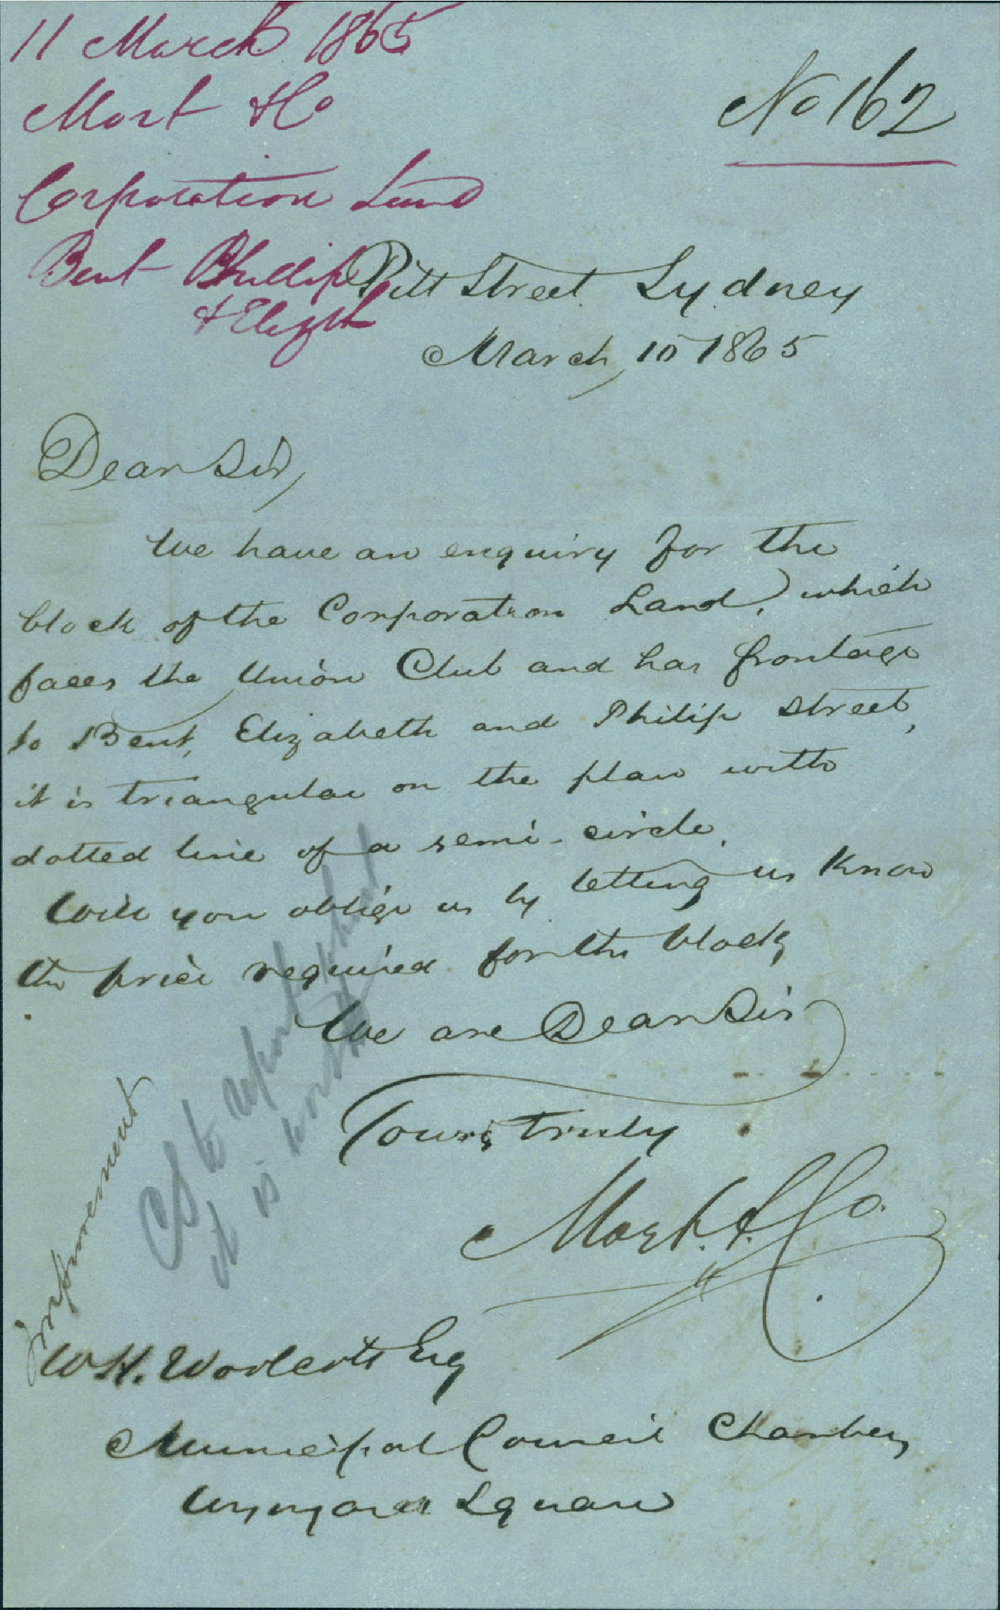 11 March 1865
Mort & Co
Corporation Land
Bent Phillip
& Elizth
No 162
Pitt Street Sydney
March 10 1865
Dear Sir,
We have an enquiry for the
block of the Corporation Land, which
faces the Union Club and has frontage
to Bent, Elizabeth and Philip Street,
it is triangular on the plan with
dotted line of a semi-circle.
Will you oblige us by letting us know
the price required for the block,
We are Dear Sir
Yours truly
Mort & Co.
CS to report what
it is worth
Improvement
W H. Woolcott Esq
Municipal Council Chambers
Wynyard Square